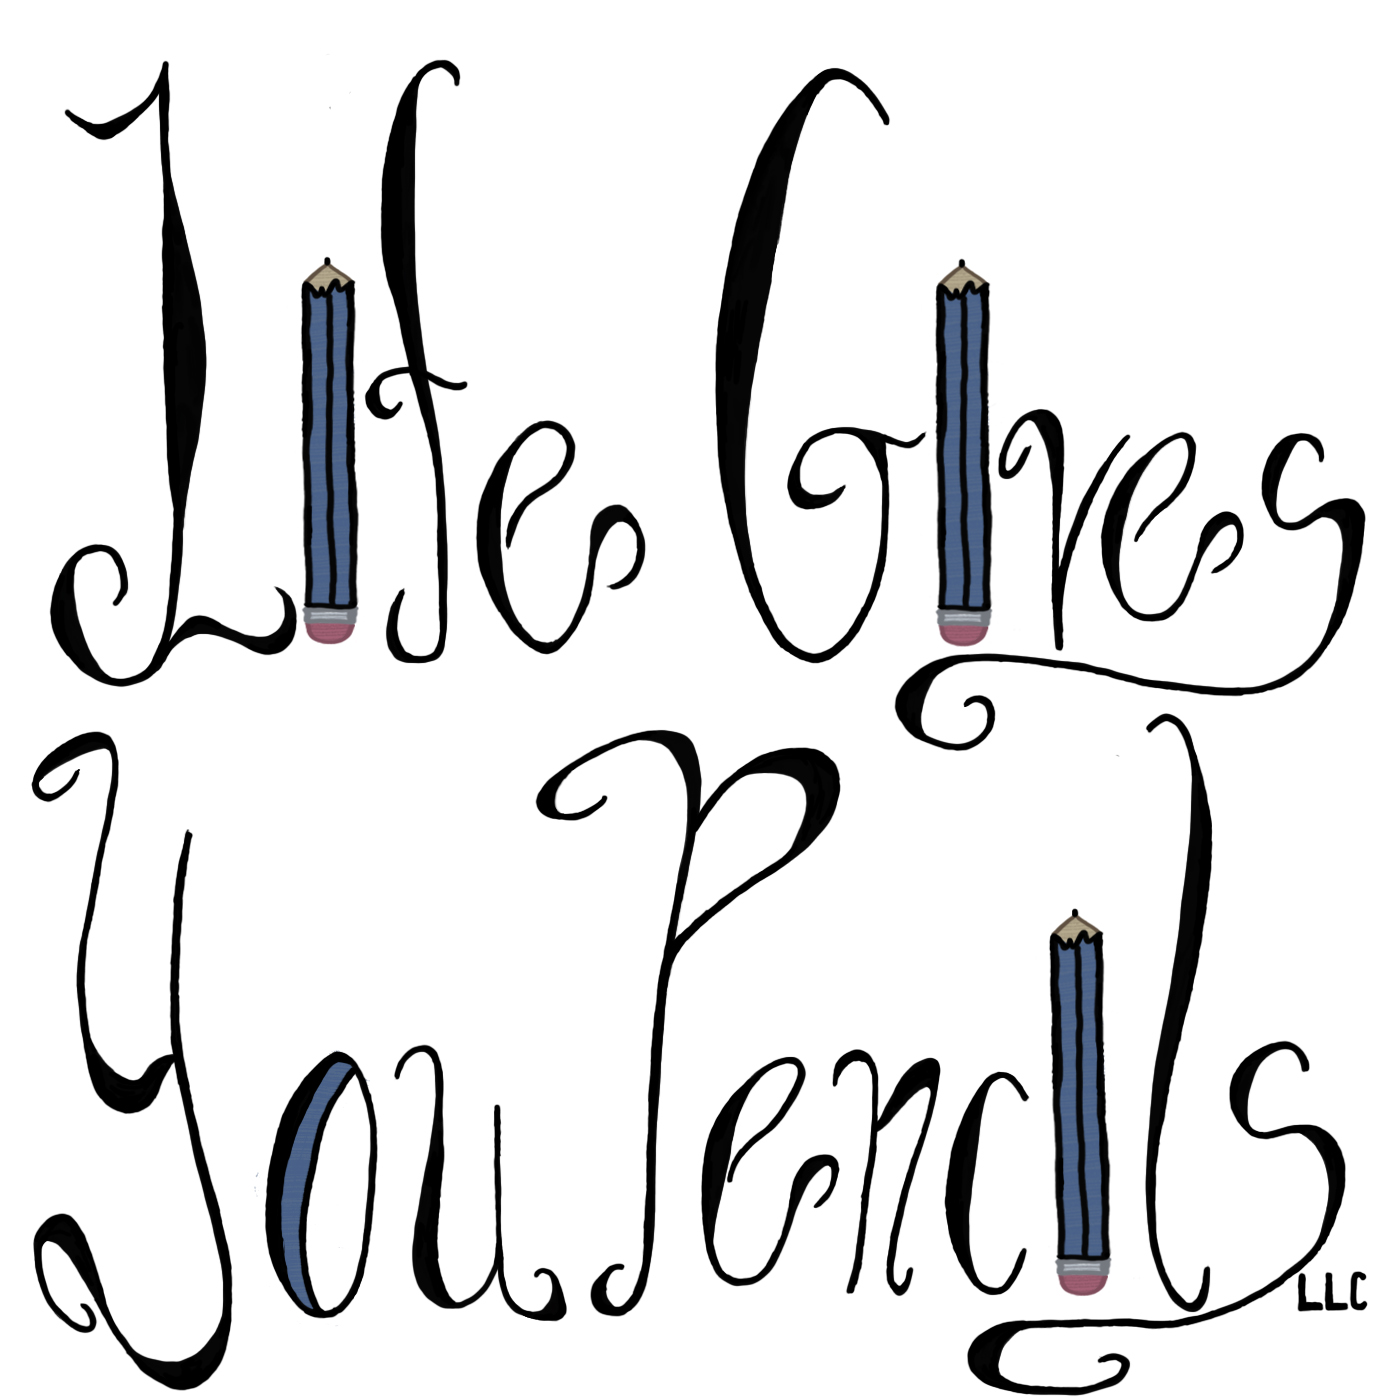 Life Gives
You Pencils
LLC